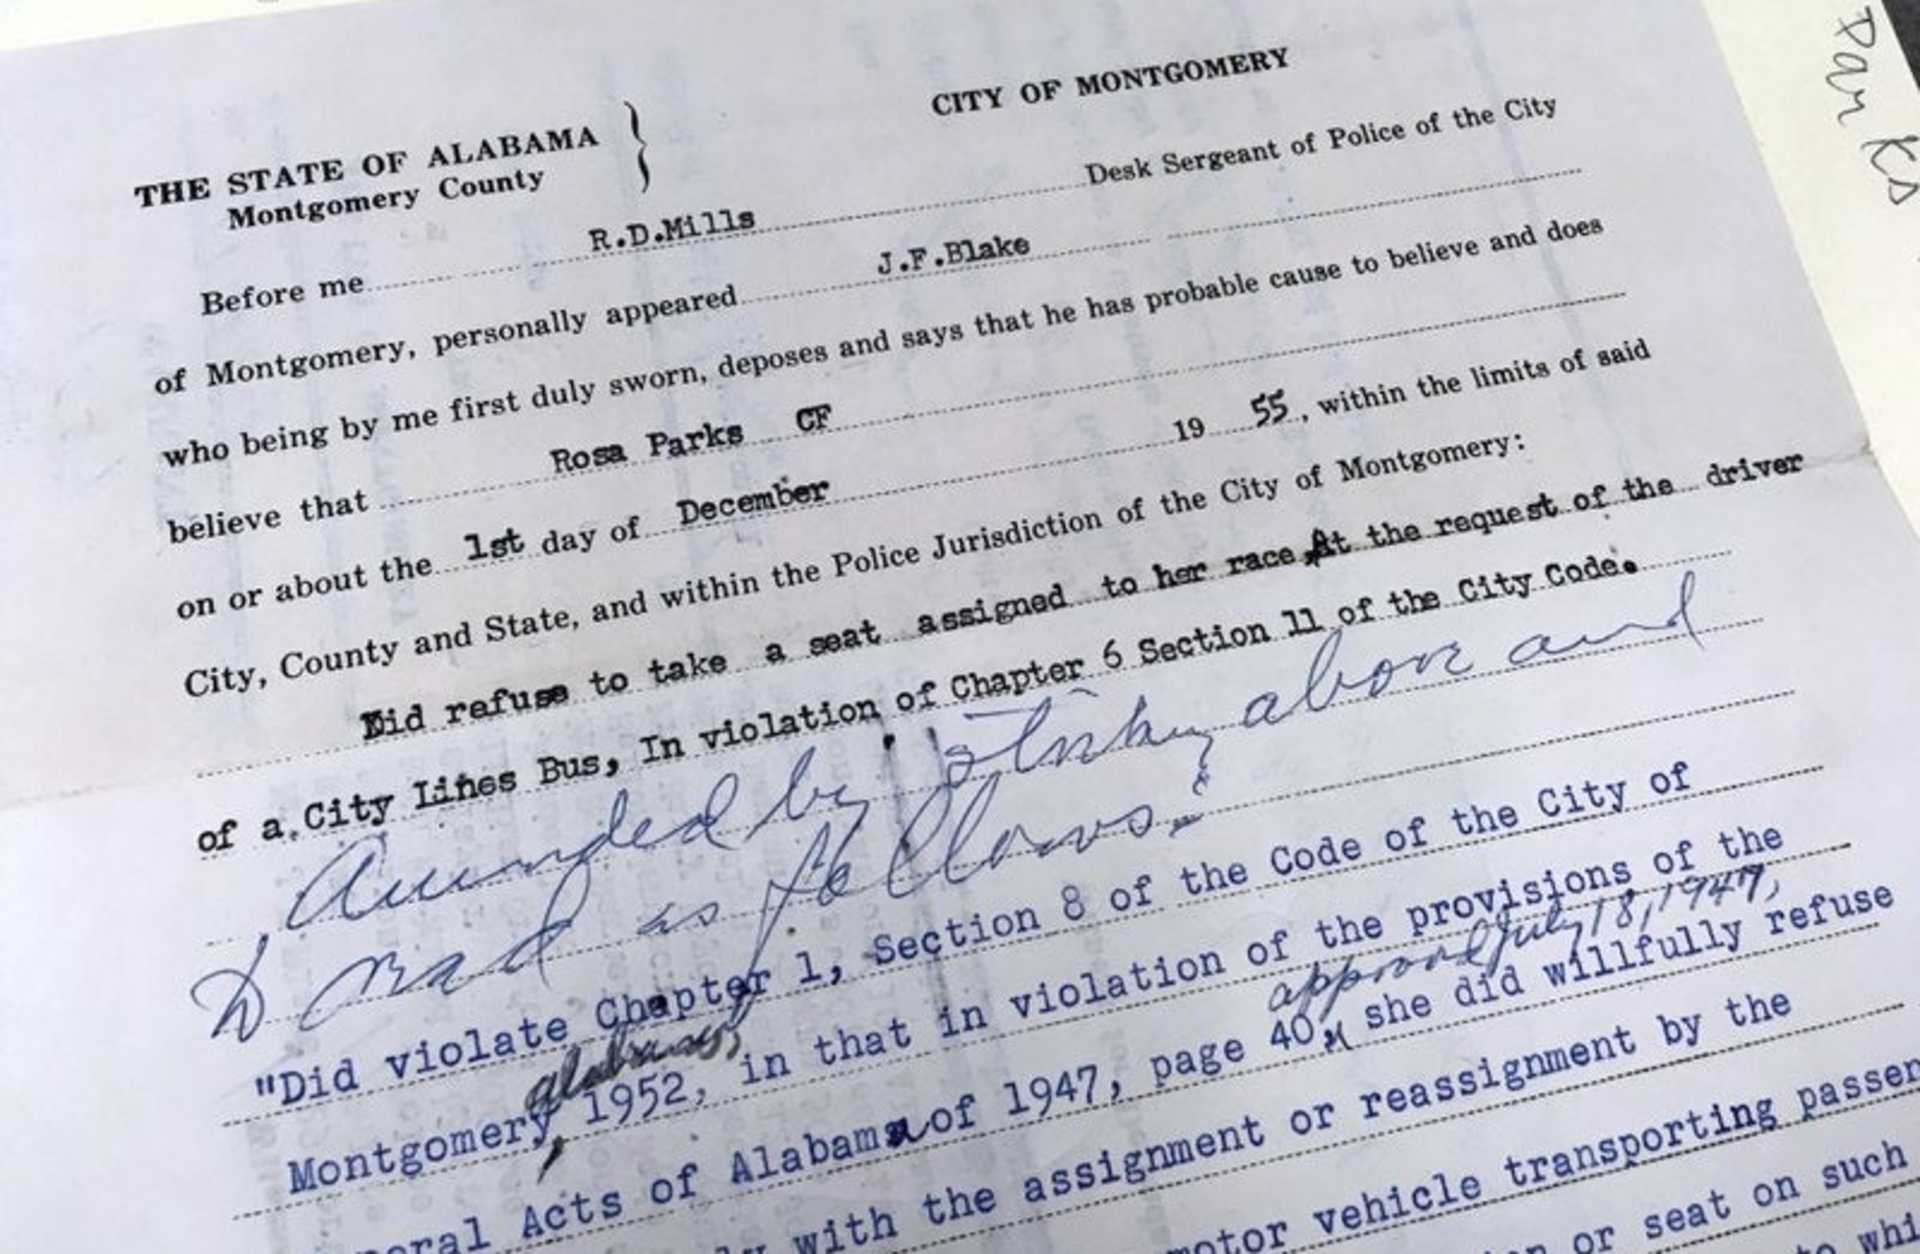 CITY OF MONTGOMERY
THE STATE OF ALABAMA
Montgomery County
Before me R.D.Mills Desk Sergeant of Police of the City
of Montgomery, personally appeared J.F.Blake
who being by me first duly sworn, deposes and says that he has probable cause to believe and does
believe that Rosa Parks CF
on or about the 1st day of December 19 55, within the limits of said
City, County and State, and within the Police Jurisdiction of the City of Montgomery:
Did refuse to take a seat assigned to her race, At the request of the driver
of a City Lines Bus, In violation of Chapter 6 Section 11 of the City Code.
Amended by striking above and
to read as follows:
"Did violate Chapter 1, Section 8 of the Code of the City of
Montgomery, Alabama, 1952, in that in violation of the provisions of the
approved July 18, 1947,
eral Acts of Alabama of 1947, page 40, she did willfully refuse
with the assignment or reassignment by the
motor vehicle transporting passen
or seat on such
whi
Parks